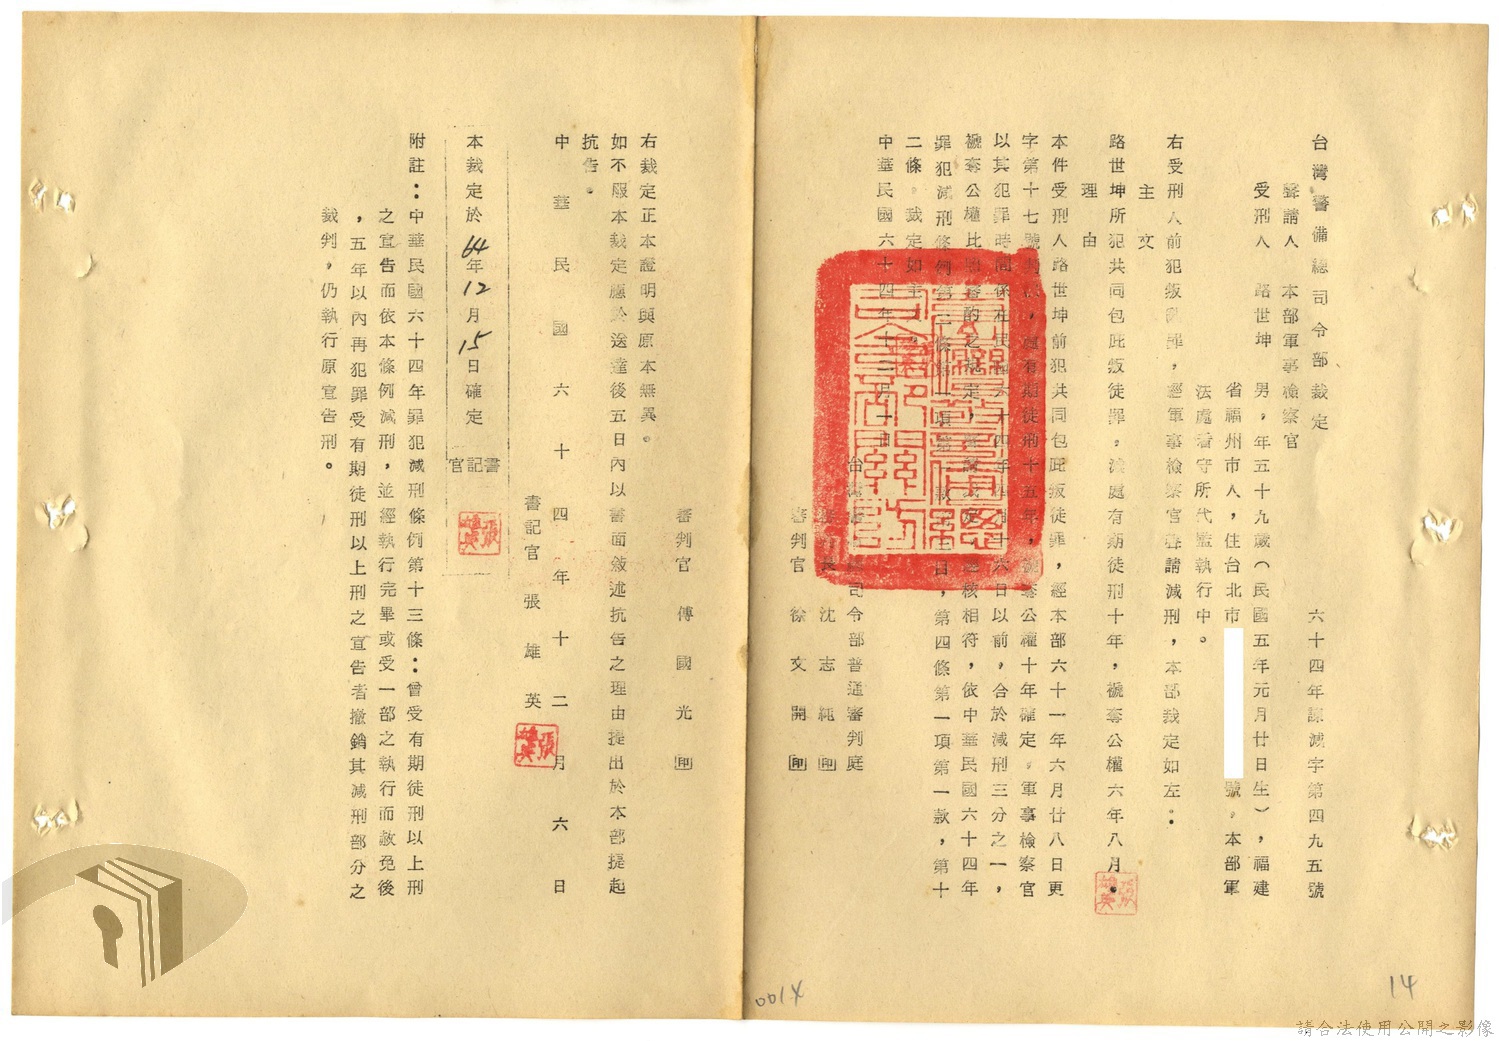 台灣警備總司令部裁定　六十四年諫減字第四九五號
聲請人　本部軍事檢察官
受刑人　路世坤　男，年五十九歲（民國五年元月廿日生），福建
省福州市人，住台北市　號。本部軍
法處看守所代監執行中。
右受刑人前犯叛亂罪，經軍事檢察官聲請減刑，本部裁定如左：
主文
路世坤所犯共同包庇叛徒罪。減處有期徒刑十年，褫奪公權六年八月。
理由
本件受刑人路世坤前犯共同包庇叛徒罪，經本部六十一年六月廿八日更
字第十七號判　處有期徒刑十五年，褫奪公權十年確定。軍事檢察官
以其犯罪時間係在民國六十四年四月十六日以前，合於減刑三分之一，
褫奪公權比照審酌之規定，聲請裁定　核相符，依中華民國六十四年
罪犯減刑條例第二條第一項第　款　目，第四條第一項第一款，第十
二條。裁定如主文。
中華民國六十四年十二月一日
台灣警備總司令部普通審判庭
審判長　沈志純　印
審判官　徐文開　印
審判官　傅國光　印
右裁定正本證明與原本無異。
如不服本裁定應於送達後五日內以書面敘述抗告之理由提出於本部提起
抗告。
中華民國六十四年十二月六日
書記官張雄英
張雄英
本裁定於64年12月15日確定
書記官
張雄英
附註：中華民國六十四年罪犯減刑條例第十三條：曾受有期徒刑以上刑
之宣告而依本條例減刑，並經執行完畢或受一部之執行而赦免後
，五年以內再犯罪受有期徒刑以上刑之宣告者撤銷其減刑部分之
裁判，仍執行原宣告刑。
張雄英
0014
14
請合法使用公開之影像